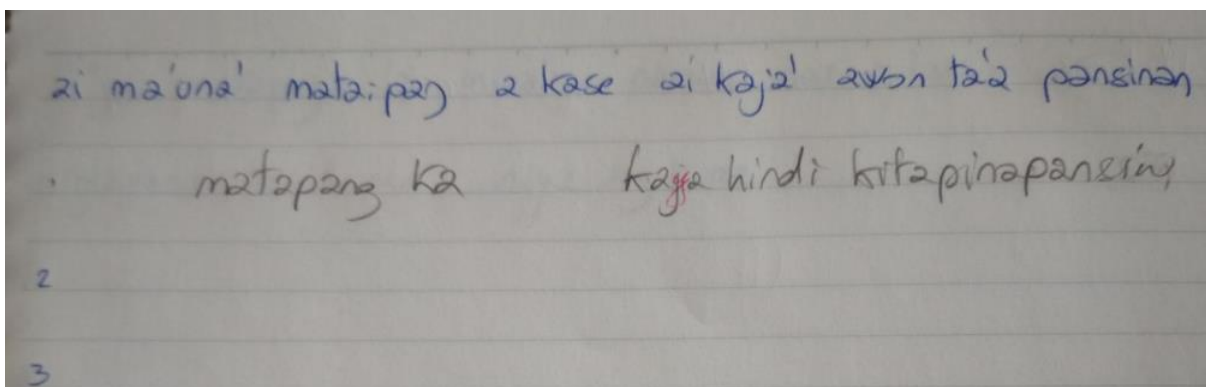 ai ma'ona' mata:pan a kase ai kaja' awon ta'a pansinan
. matapang ka kaya hindi kita pinapansin,
2
3